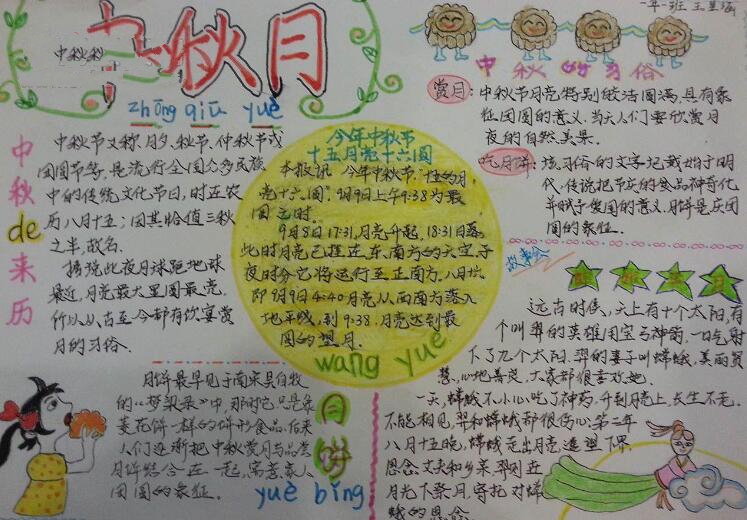 中秋月
中秋秋
zhōng qiū yuè
一年一班
中秋de来历
中秋节又称月夕、秋节、仲秋节或
团圆节等，是流行全国众多民族
中的传统文化节日，时正农
历八月十五；因其恰值三秋
之半，故名。
据说此夜月球距地球
最近，月亮最大里圆最亮，
所以从古至今都有饮宴赏
月的习俗。
今年中秋节
十五月亮十六圆
本报讯 今年中秋节，“十五的月
亮十六圆”。9月9日上午9:38为最
圆之时。
9月8日17:31,月亮升起，18:31日落
此时月亮已挂在东南方的天空，子
夜时分它将运行至正南方。八月十六
即9月9日4:40月亮从西南方落入
地平线，到9:38,月亮达到最
圆的望月.
wang yuè
中秋的习俗
赏月：中秋节月亮特别皎洁圆满，具有象
征团圆的意义，当天人们要欣赏月
夜的自然美景。
吃月饼：该习俗的文字记载出于明
代，传说把节庆的食品神奇化
并赋予爱国的意义，月饼是庆团
圆的象征。
故事会
远古时候，天上有十个太阳，有
个叫羿的英雄用宝弓神箭，一口气射
下了九个太阳。羿的妻子叫嫦娥，美丽贤
慧，心地善良，大家都很喜欢她。
一天，嫦娥不小心吃了神药，升到月亮上，长生不老。
不能相见，羿和嫦娥都很伤心，第二年
八月十五晚，嫦娥走出月亮，遥望下界
思念丈夫和乡亲，羿则在
月光下祭月，寄托对嫦
娥的思念
月饼最早见于南宋吴自牧
的《梦粱录》中，那时它只是象
菱花饼一样的饼形食品，后来
人们逐渐把中秋赏月与品尝
月饼结合在一起，寓意家人
团圆的象征。
月饼
yuè bǐng